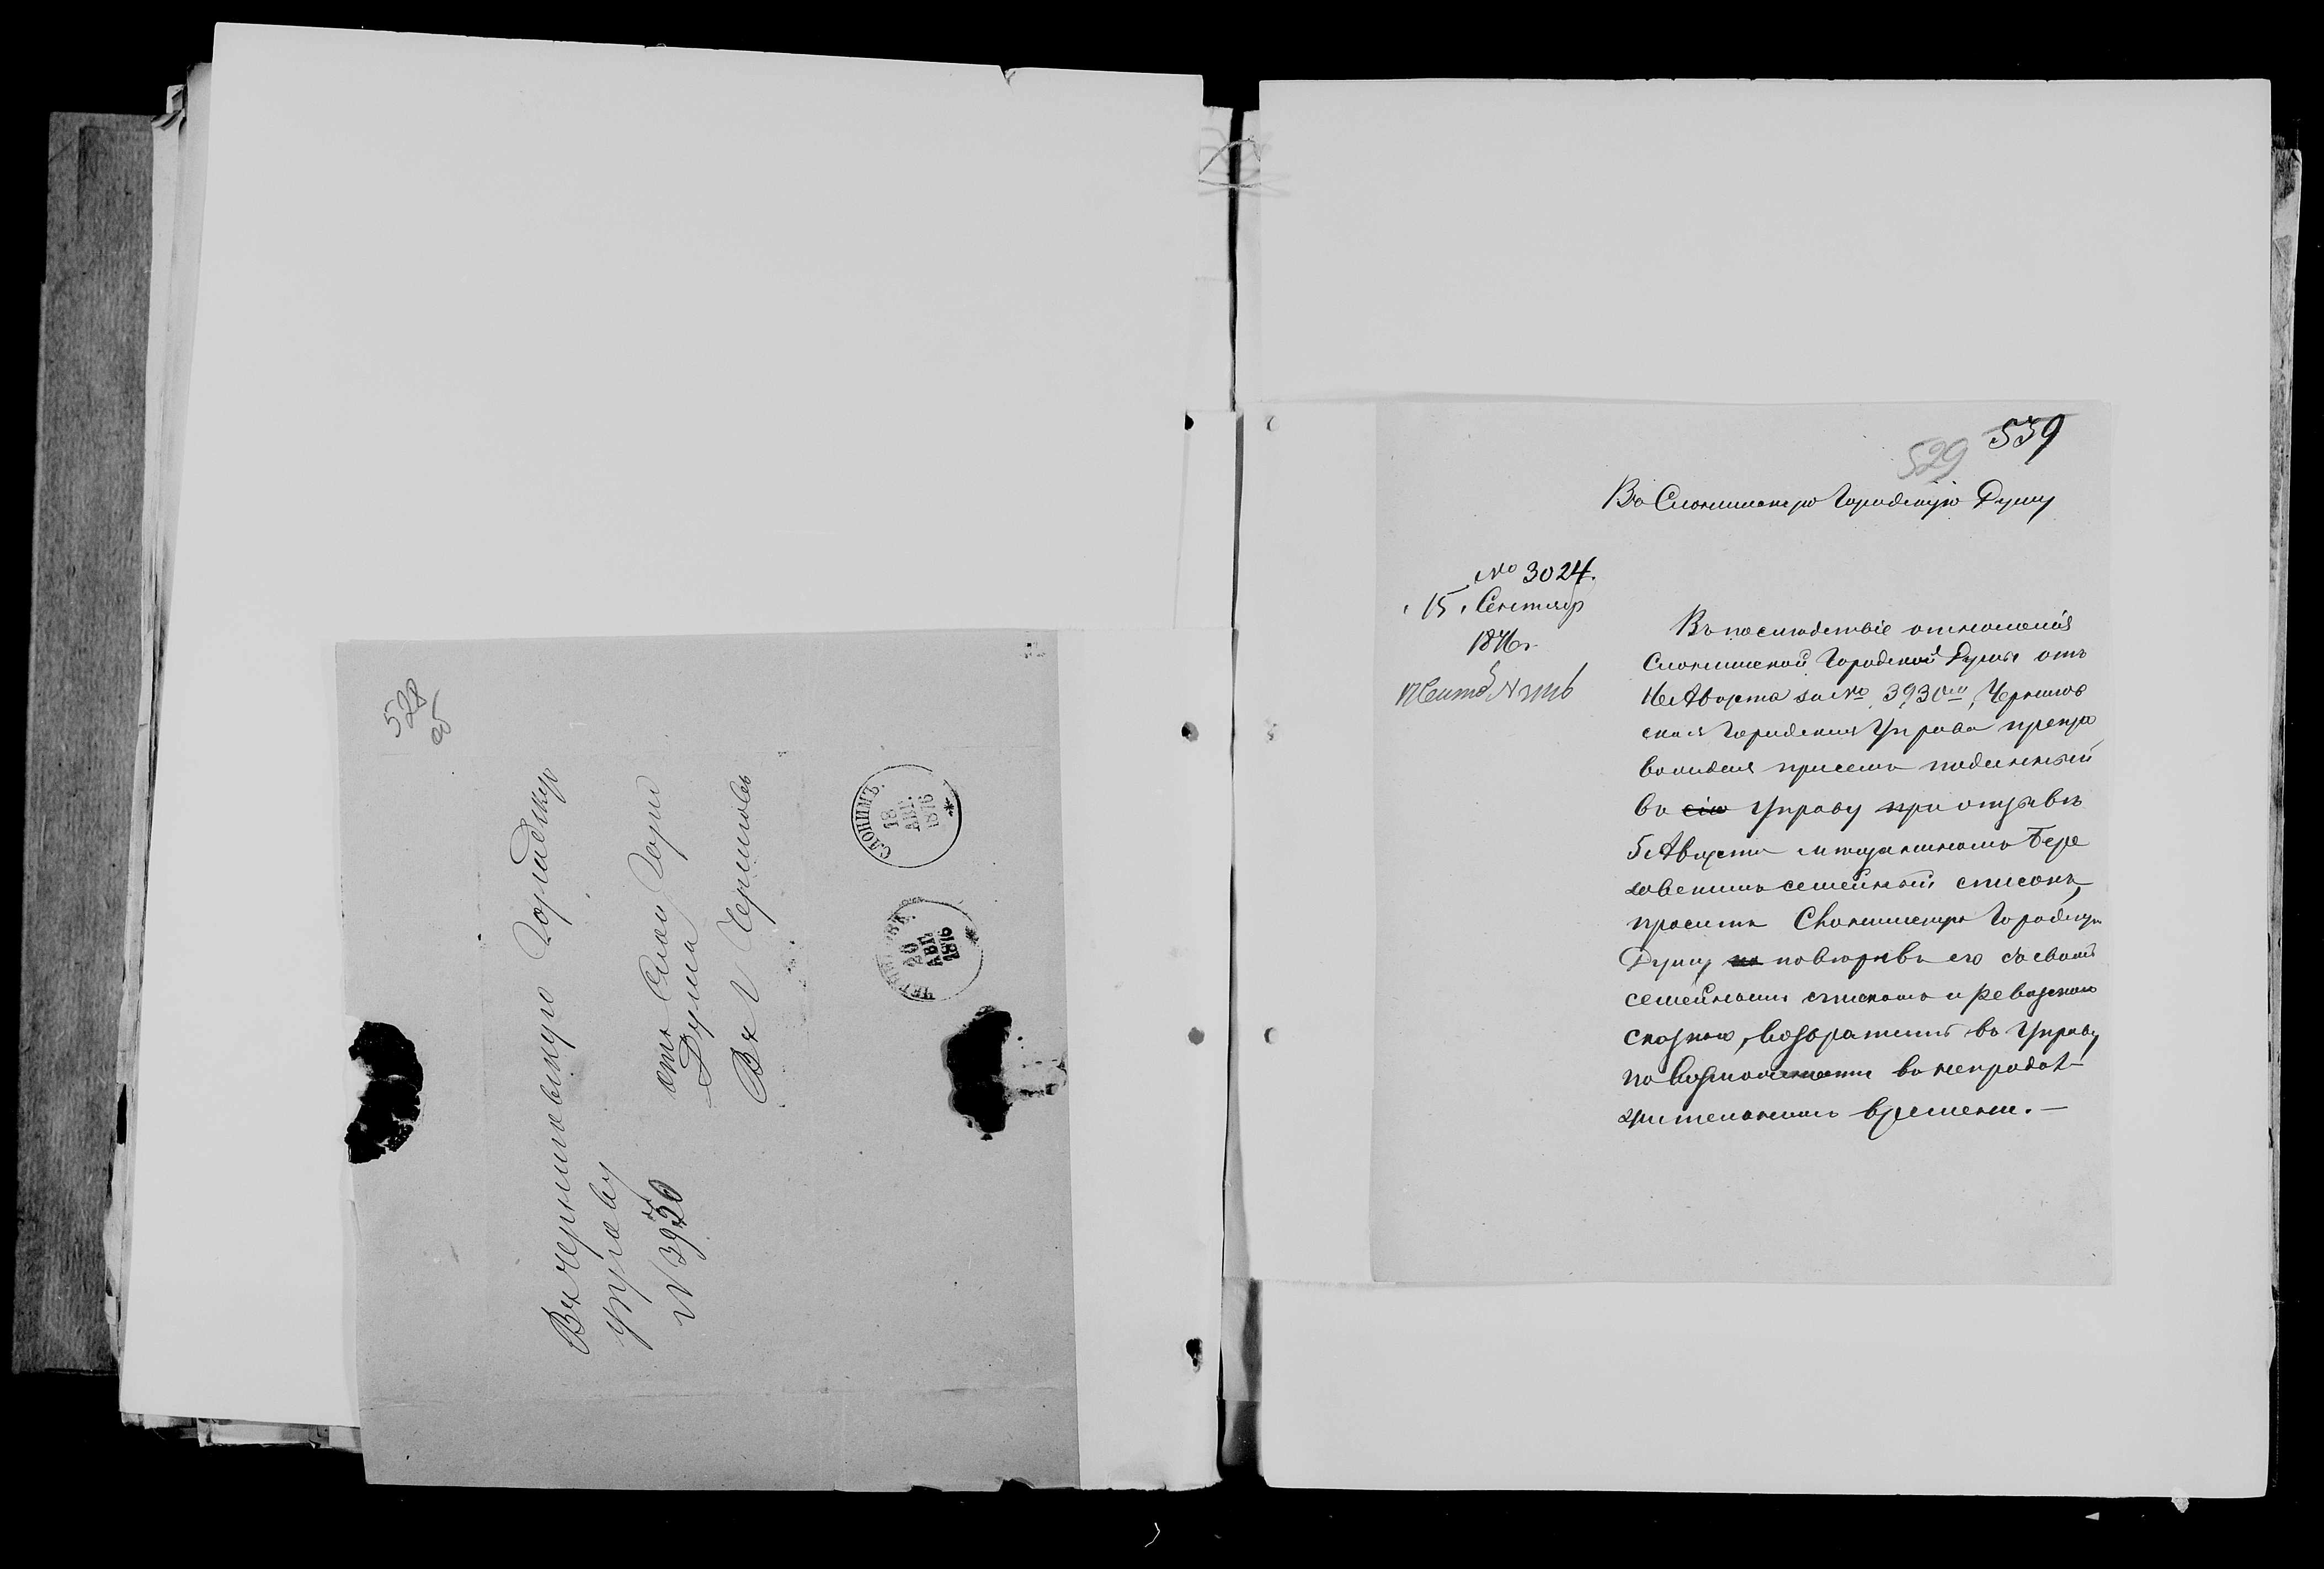 528
об
Въ Черниговскую Городскую
управу
№ 3930
отъ Слон. Гор.
Думы
Въ г. Черниговъ
СЛОНИМЪ
18
АВГ.
1876
20
АВГ.
1876
539
529
Въ Слонимскую Городскую Думу
№ 3024.
15 Сентябр
1876 г.
Въ последствіе отношенія
Слонимской Городской Думы отъ
16 Августа за № 3930, Чернигов
ская Городская Управа препро
вождая присемъ поданный
въ сію Управу при отзывѣ
5 Августа мещаниномъ Бере
зовскимъ семейный списокъ,
проситъ Слонимскую Городскую
Думу по повѣркѣ его съ своимъ
семейнымъ спискомъ и ревизскою
сказкою, возвратить въ Управу
по возможности въ непродол-
жительномъ времени. —